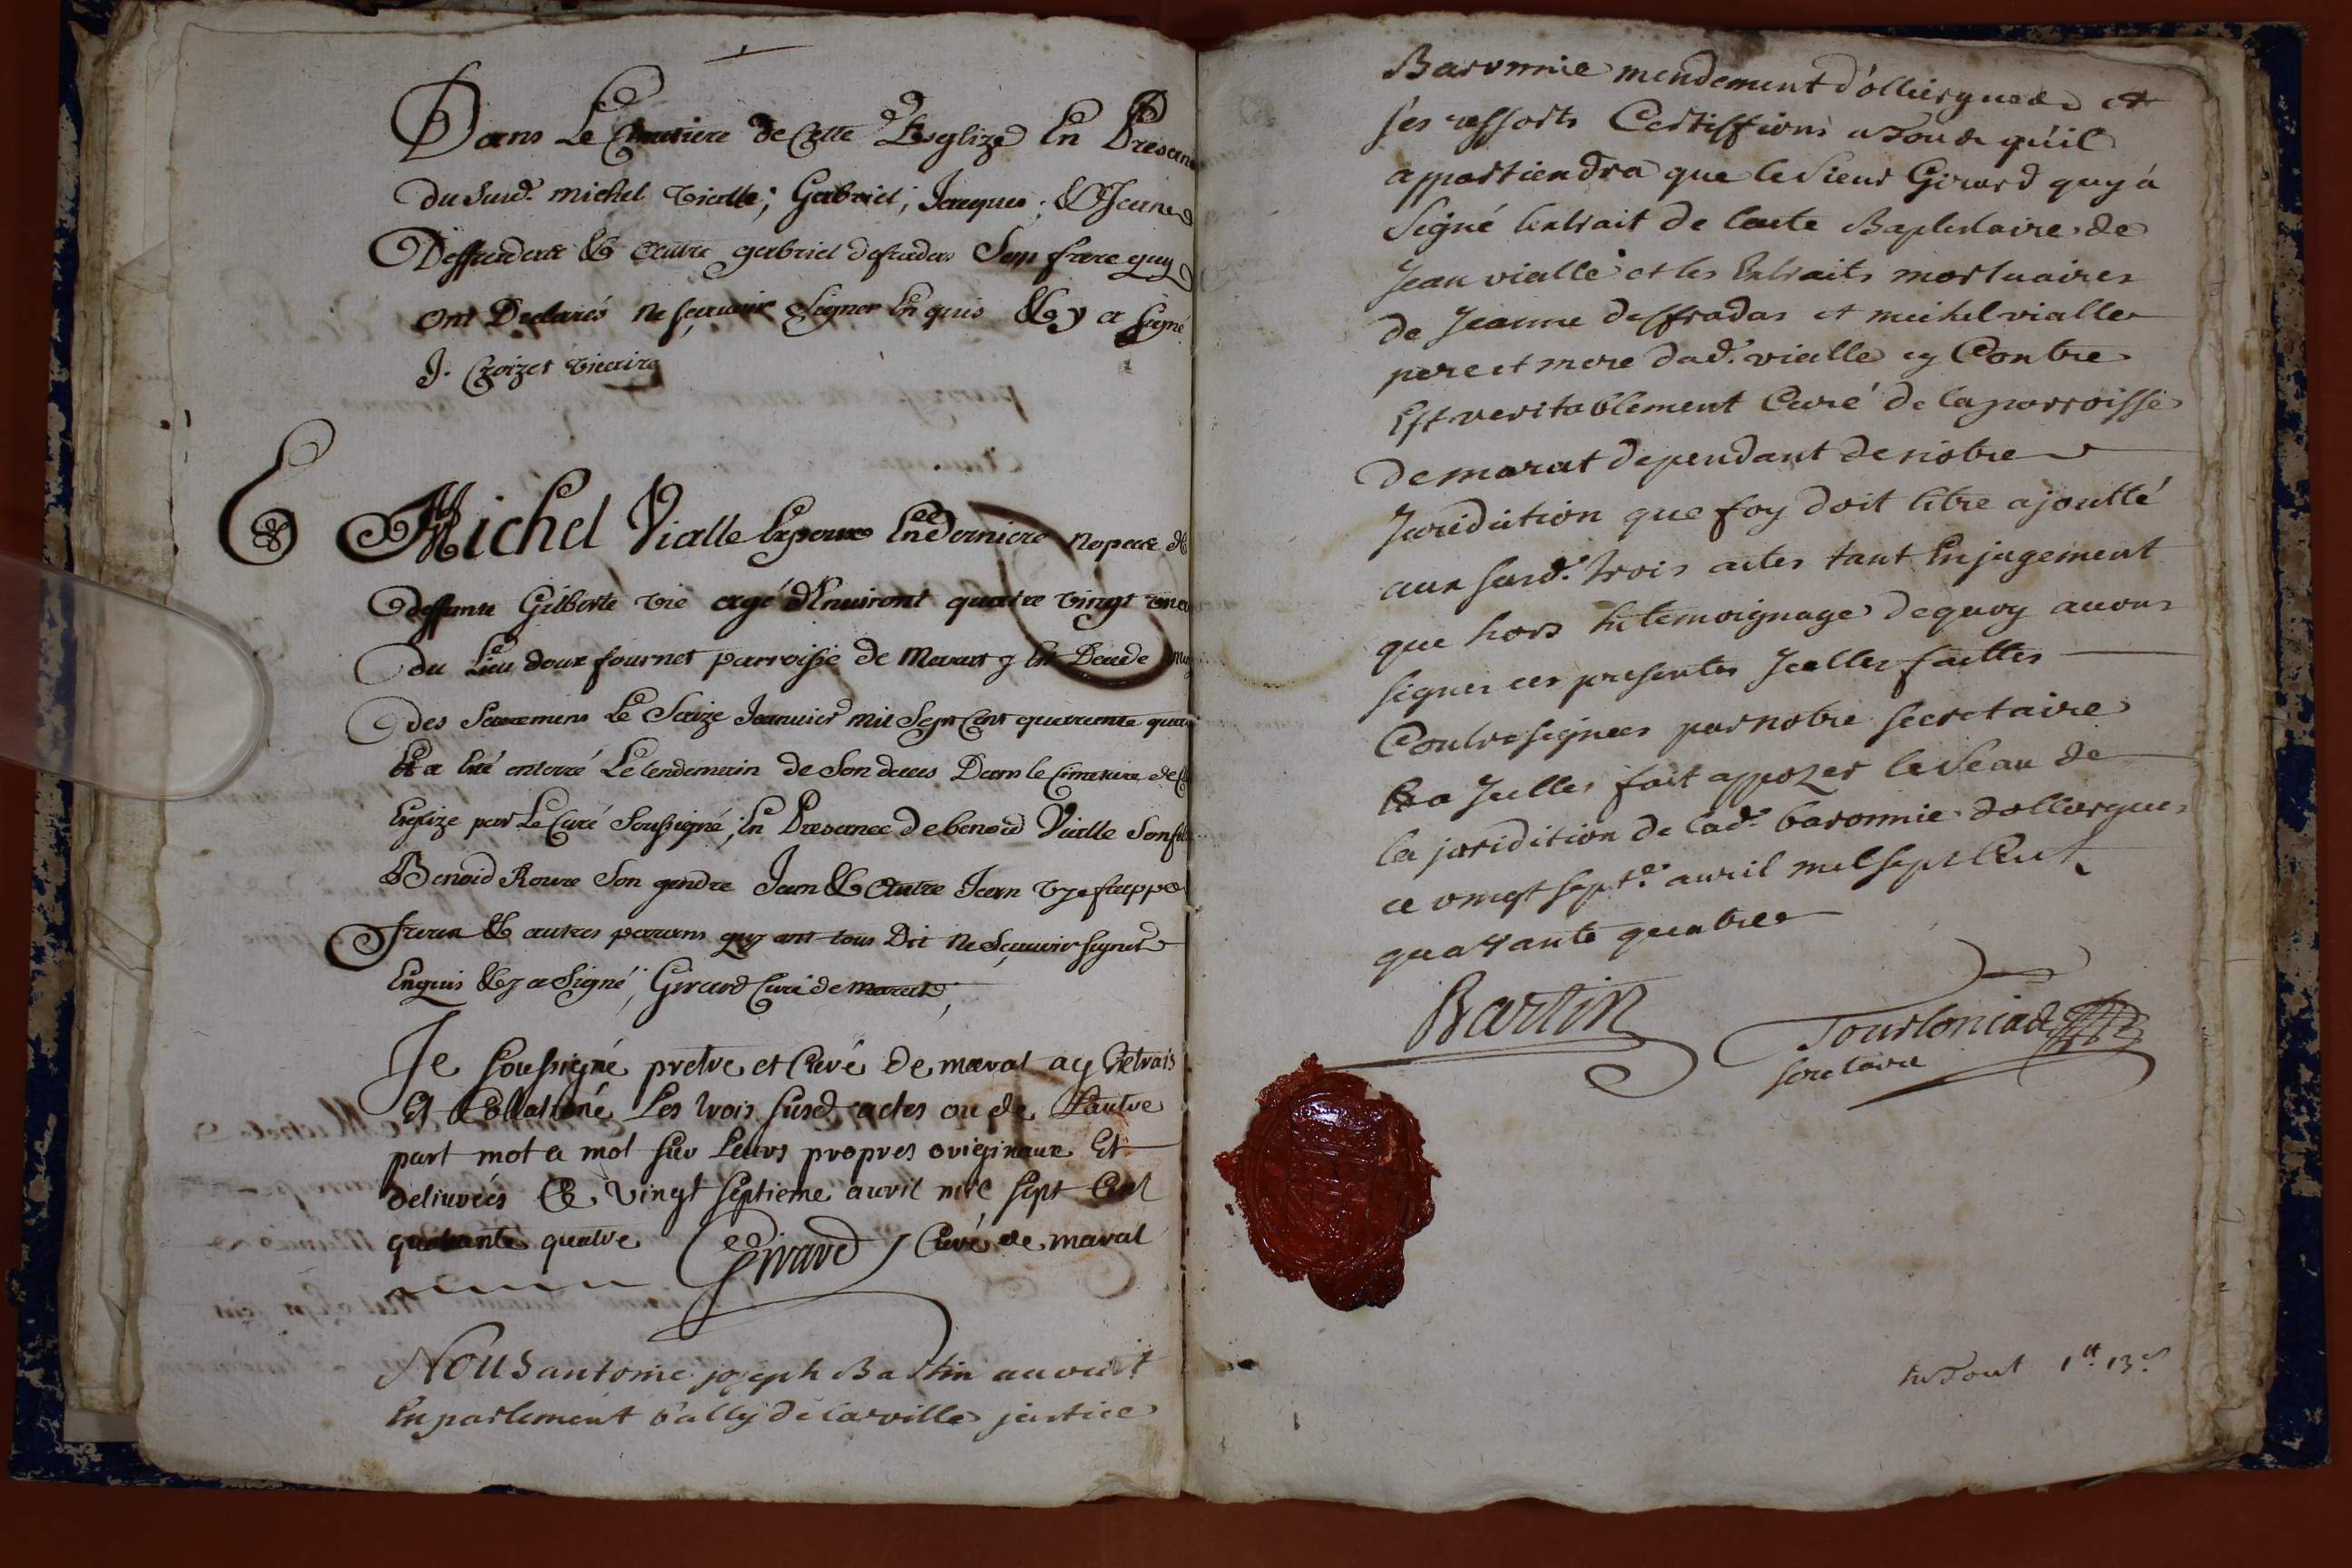 Dans Le Cimetiere de Cette Esglize En Presence
du susd. michel vialle; Gabriel; Jacques; & Jeanne
Deffradas & autre gabriel defradas Son frere quy
ont Declarés ne scavoir Signer Enquis & y a signé
J. Croizet vicaire
Michel Vialle Epoux En Derniere nopces de
deffunte Gilberte vie agé d'Environt quatre vingt
du Lieu doux fournet parroisse de Marat y Est Decedé
des Sacremens Le Saize Janvier mil Sept Cent quarante quatre
Et a Eté enterré Le lendemain de Son deces Dans le Cimetiere de
Esglize par Le Curé Soussigné; En Presence de benoid Vialle Son fils
Benoid Roure Son gendre Jean & autre Jean frappa
freres & autres parans quy ont tous Dit ne Scavoir signer
Enquis & y a Signé; Girard Curé de marat;
Je soussigné pretre et Curé de marat ay Extrais
Et Collationé Les trois susd actes ou de Lautre
part mot a mot sur Leurs propres originaux Et
deliuvrés Ce vingt septieme avril mil sept Cent
quarante quatre Girard Curé de marat
Nous antoine joseph Bartin advocat
En parlement bally de la ville justice
Baronnie mendement d'ollierguedes et
ses ressorts Certiffions a Tous qu'il
appartiendra que le Sieur Girard quy á
Signé lextrait de lacte Baptistaire de
Jean vialle et les Extraits mortuaires
de Jeanne deffradas et michel vialle
pere et mere dud. vialle cy Contre
Est veritablement Curé de la parroisse
de marat dependant de nôtre
Juridiction que foy doit Etre ajoutté
aux susd. trois actes tant En jugement
que hors En temoignage de quoy avons
signer ces presentes Jcelles faittes
Contresignees par notre secretaire
Et a Jcelles fait appozer le Seau de
la juridition de lad. baronnie dollargues
ce vingt sept.e avril mil sept Cent
quarante quatre
Bartin Tourloniade
secretaire
En Tout 1tt 13s